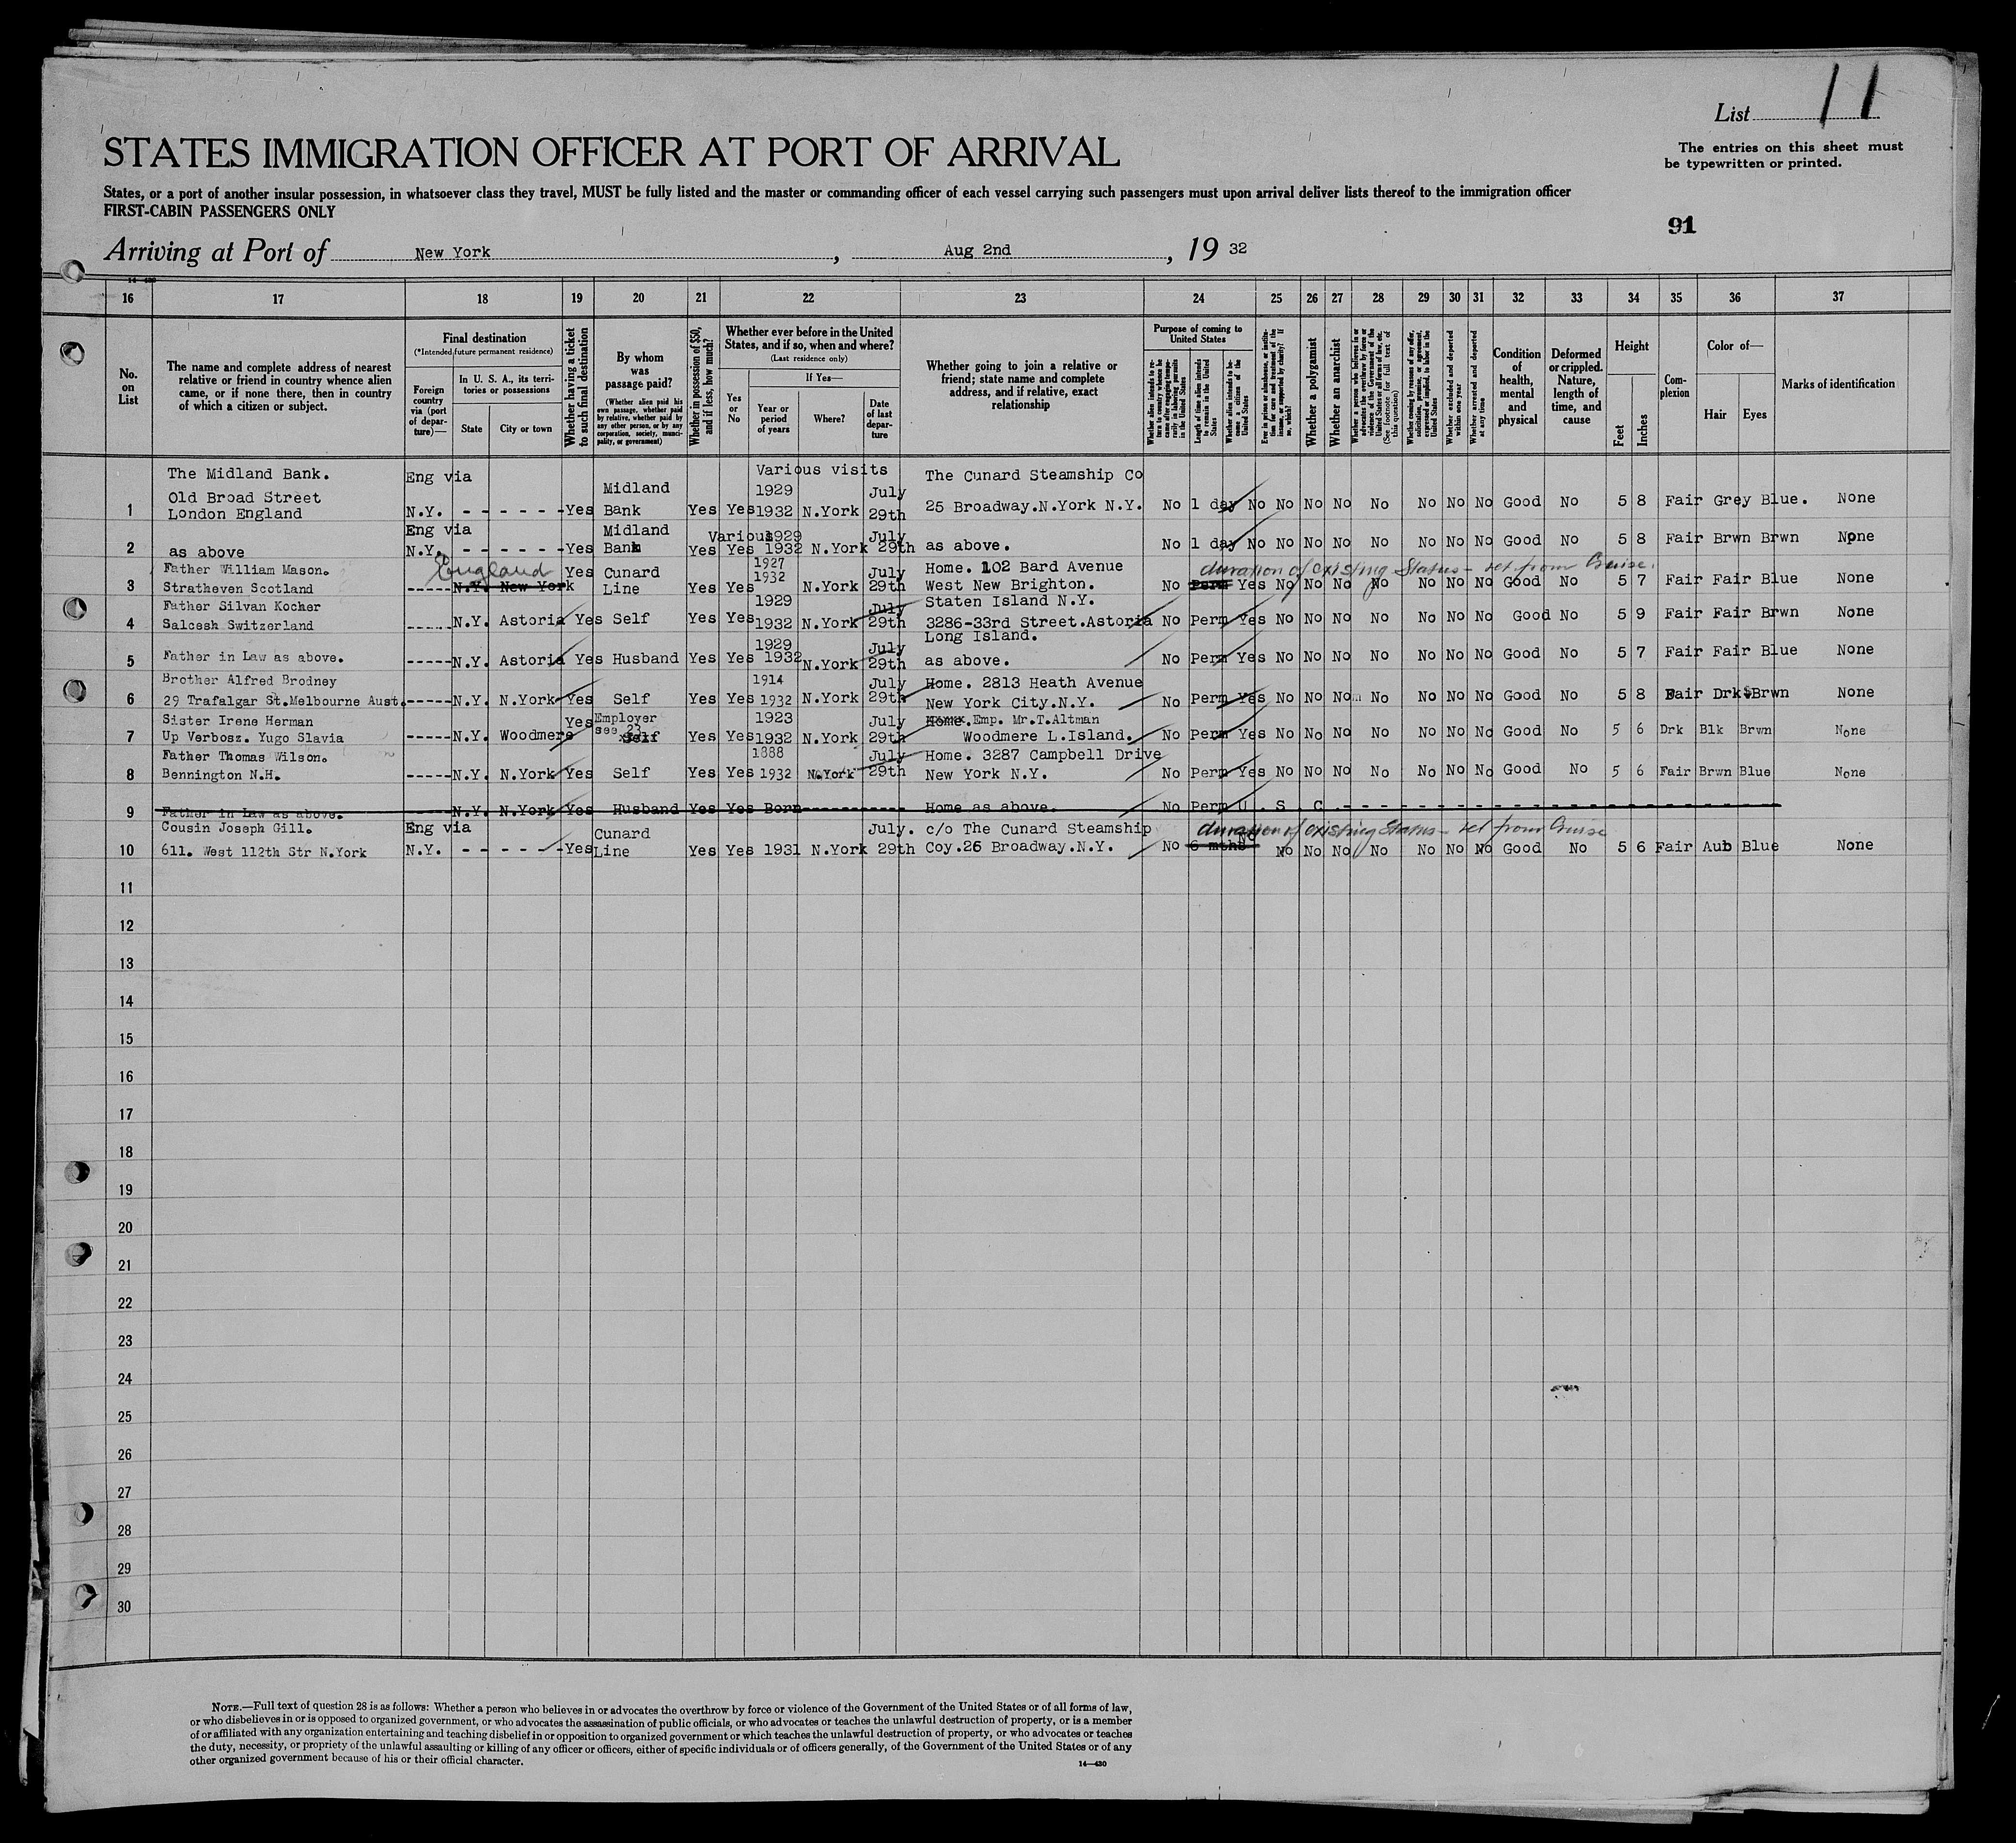 List 11
The entries on this sheet must
be typewritten or printed.
STATES IMMIGRATION OFFICER AT PORT OF ARRIVAL
States, or a port of another insular possession, in whatsoever class they travel, MUST be fully listed and the master or commanding officer of each vessel carrying such passengers must upon arrival deliver lists thereof to the immigration officer
FIRST-CABIN PASSENGERS ONLY
91
Arriving at Port of New York, Aug 2nd, 19 32
16 17 18 19 20 21 22 23 24 25 26 27 28 29 30 31 32 33 34 35 36 37
No. on List
The name and complete address of nearest
relative or friend in country whence alien
came, or if none there, then in country
of which a citizen or subject.
Final destination
(*Intended future permanent residence)
Foreign country via (port of departure)—
In U. S. A., its territories or possessions
State
City or town
Whether having a ticket to such final destination
By whom was passage paid?
(Whether alien paid his own passage, whether paid by relative, whether paid by any other person, or by any corporation, society, municipality, or government)
Whether in possession of $50, and if less, how much?
Whether ever before in the United States, and if so, when and where?
(Last residence only)
Yes or No
If Yes—
Year or period of years
Where?
Date of last departure
Whether going to join a relative or
friend; state name and complete
address, and if relative, exact
relationship
Purpose of coming to United States
Whether alien intends to return to country whence he came after engaging temporarily in laboring pursuits in the United States
Length of time alien intends to remain in the United States
Whether alien intends to become a citizen of the United States
Ever in prison or almshouse, or institution for care and treatment of the insane, or supported by charity? If so, which?
Whether a polygamist
Whether an anarchist
Whether a person who believes in or advocates the overthrow by force or violence of the Government of the United States or all forms of law, etc. (See footnote for full text of this question)
Whether coming by reasons of any offer, solicitation, promise, or agreement, expressed or implied, to labor in the United States
Whether excluded and deported within one year
Whether arrested and deported at any time
Condition of health, mental and physical
Deformed or crippled. Nature, length of time, and cause
Height
Feet
Inches
Complexion
Color of—
Hair
Eyes
Marks of identification
The Midland Bank. Eng via Various visits The Cunard Steamship Co
Old Broad Street Midland 1929 July
1 London England N.Y. - - - - - -Yes Bank Yes Yes 1932 N.York 29th 25 Broadway.N.York N.Y. No 1 day No No No No No No No No Good No 5 8 Fair Grey Blue. None
Eng via Midland Various 1929 July
2 as above N.Y. - - - - - -Yes Bank Yes Yes 1932 N.York 29th as above. No 1 day No No No No No No No No Good No 5 8 Fair Brwn Brwn None
Father William Mason. England Yes Cunard 1927 July Home. 102 Bard Avenue duration of existing Status - ret from Cruise.
3 Stratheven Scotland -----N.Y. New York Line Yes Yes 1932 N.York 29th West New Brighton. No Perm Yes No No No No No No No Good No 5 7 Fair Fair Blue None
Father Silvan Kocher 1929 July Staten Island N.Y.
4 Salcesh Switzerland -----N.Y. Astoria Yes Self Yes Yes 1932 N.York 29th 3286-33rd Street.Astoria No Perm Yes No No No No No No No Good No 5 9 Fair Fair Brwn None
1929 July Long Island.
5 Father in Law as above. -----N.Y. Astoria Yes Husband Yes Yes 1932 N.York 29th as above. No Perm Yes No No No No No No No Good No 5 7 Fair Fair Blue None
Brother Alfred Brodney 1914 July Home. 2813 Heath Avenue
6 29 Trafalgar St.Melbourne Aust.-----N.Y. N.York Yes Self Yes Yes 1932 N.York 29th New York City.N.Y. No Perm Yes No No No No No No No Good No 5 8 Fair Drk Brwn None
Sister Irene Herman Yes Employer 1923 July Home. Emp. Mr.T.Altman
7 Up Verbosz. Yugo Slavia -----N.Y. Woodmere see 23 Self Yes Yes 1932 N.York 29th Woodmere L.Island. No Perm Yes No No No No No No No Good No 5 6 Drk Blk Brwn None
Father Thomas Wilson. 1888 July Home. 3287 Campbell Drive
8 Bennington N.H. -----N.Y. N.York Yes Self Yes Yes 1932 N.York 29th New York N.Y. No Perm Yes No No No No No No No Good No 5 6 Fair Brwn Blue None
9 Father in Law as above. N.Y. N.York Yes Husband Yes Yes Born---------- Home as above. No Perm U . S . C . - - - - - -
Cousin Joseph Gill. Eng via Cunard July. c/o The Cunard Steamship duration of existing Status - ret from Cruise
10 611. West 112th Str N.York N.Y. - - - - - -Yes Line Yes Yes 1931 N.York 29th Coy.26 Broadway.N.Y. No 6 mths No No No No No No No No Good No 5 6 Fair Aub Blue None
11
12
13
14
15
16
17
18
19
20
21
22
23
24
25
26
27
28
29
30
NOTE.—Full text of question 28 is as follows: Whether a person who believes in or advocates the overthrow by force or violence of the Government of the United States or of all forms of law,
or who disbelieves in or is opposed to organized government, or who advocates the assassination of public officials, or who advocates or teaches the unlawful destruction of property, or is a member
of or affiliated with any organization entertaining and teaching disbelief in or opposition to organized government or which teaches the unlawful destruction of property, or who advocates or teaches
the duty, necessity, or propriety of the unlawful assaulting or killing of any officer or officers, either of specific individuals or of officers generally, of the Government of the United States or of any
other organized government because of his or their official character.
14—430